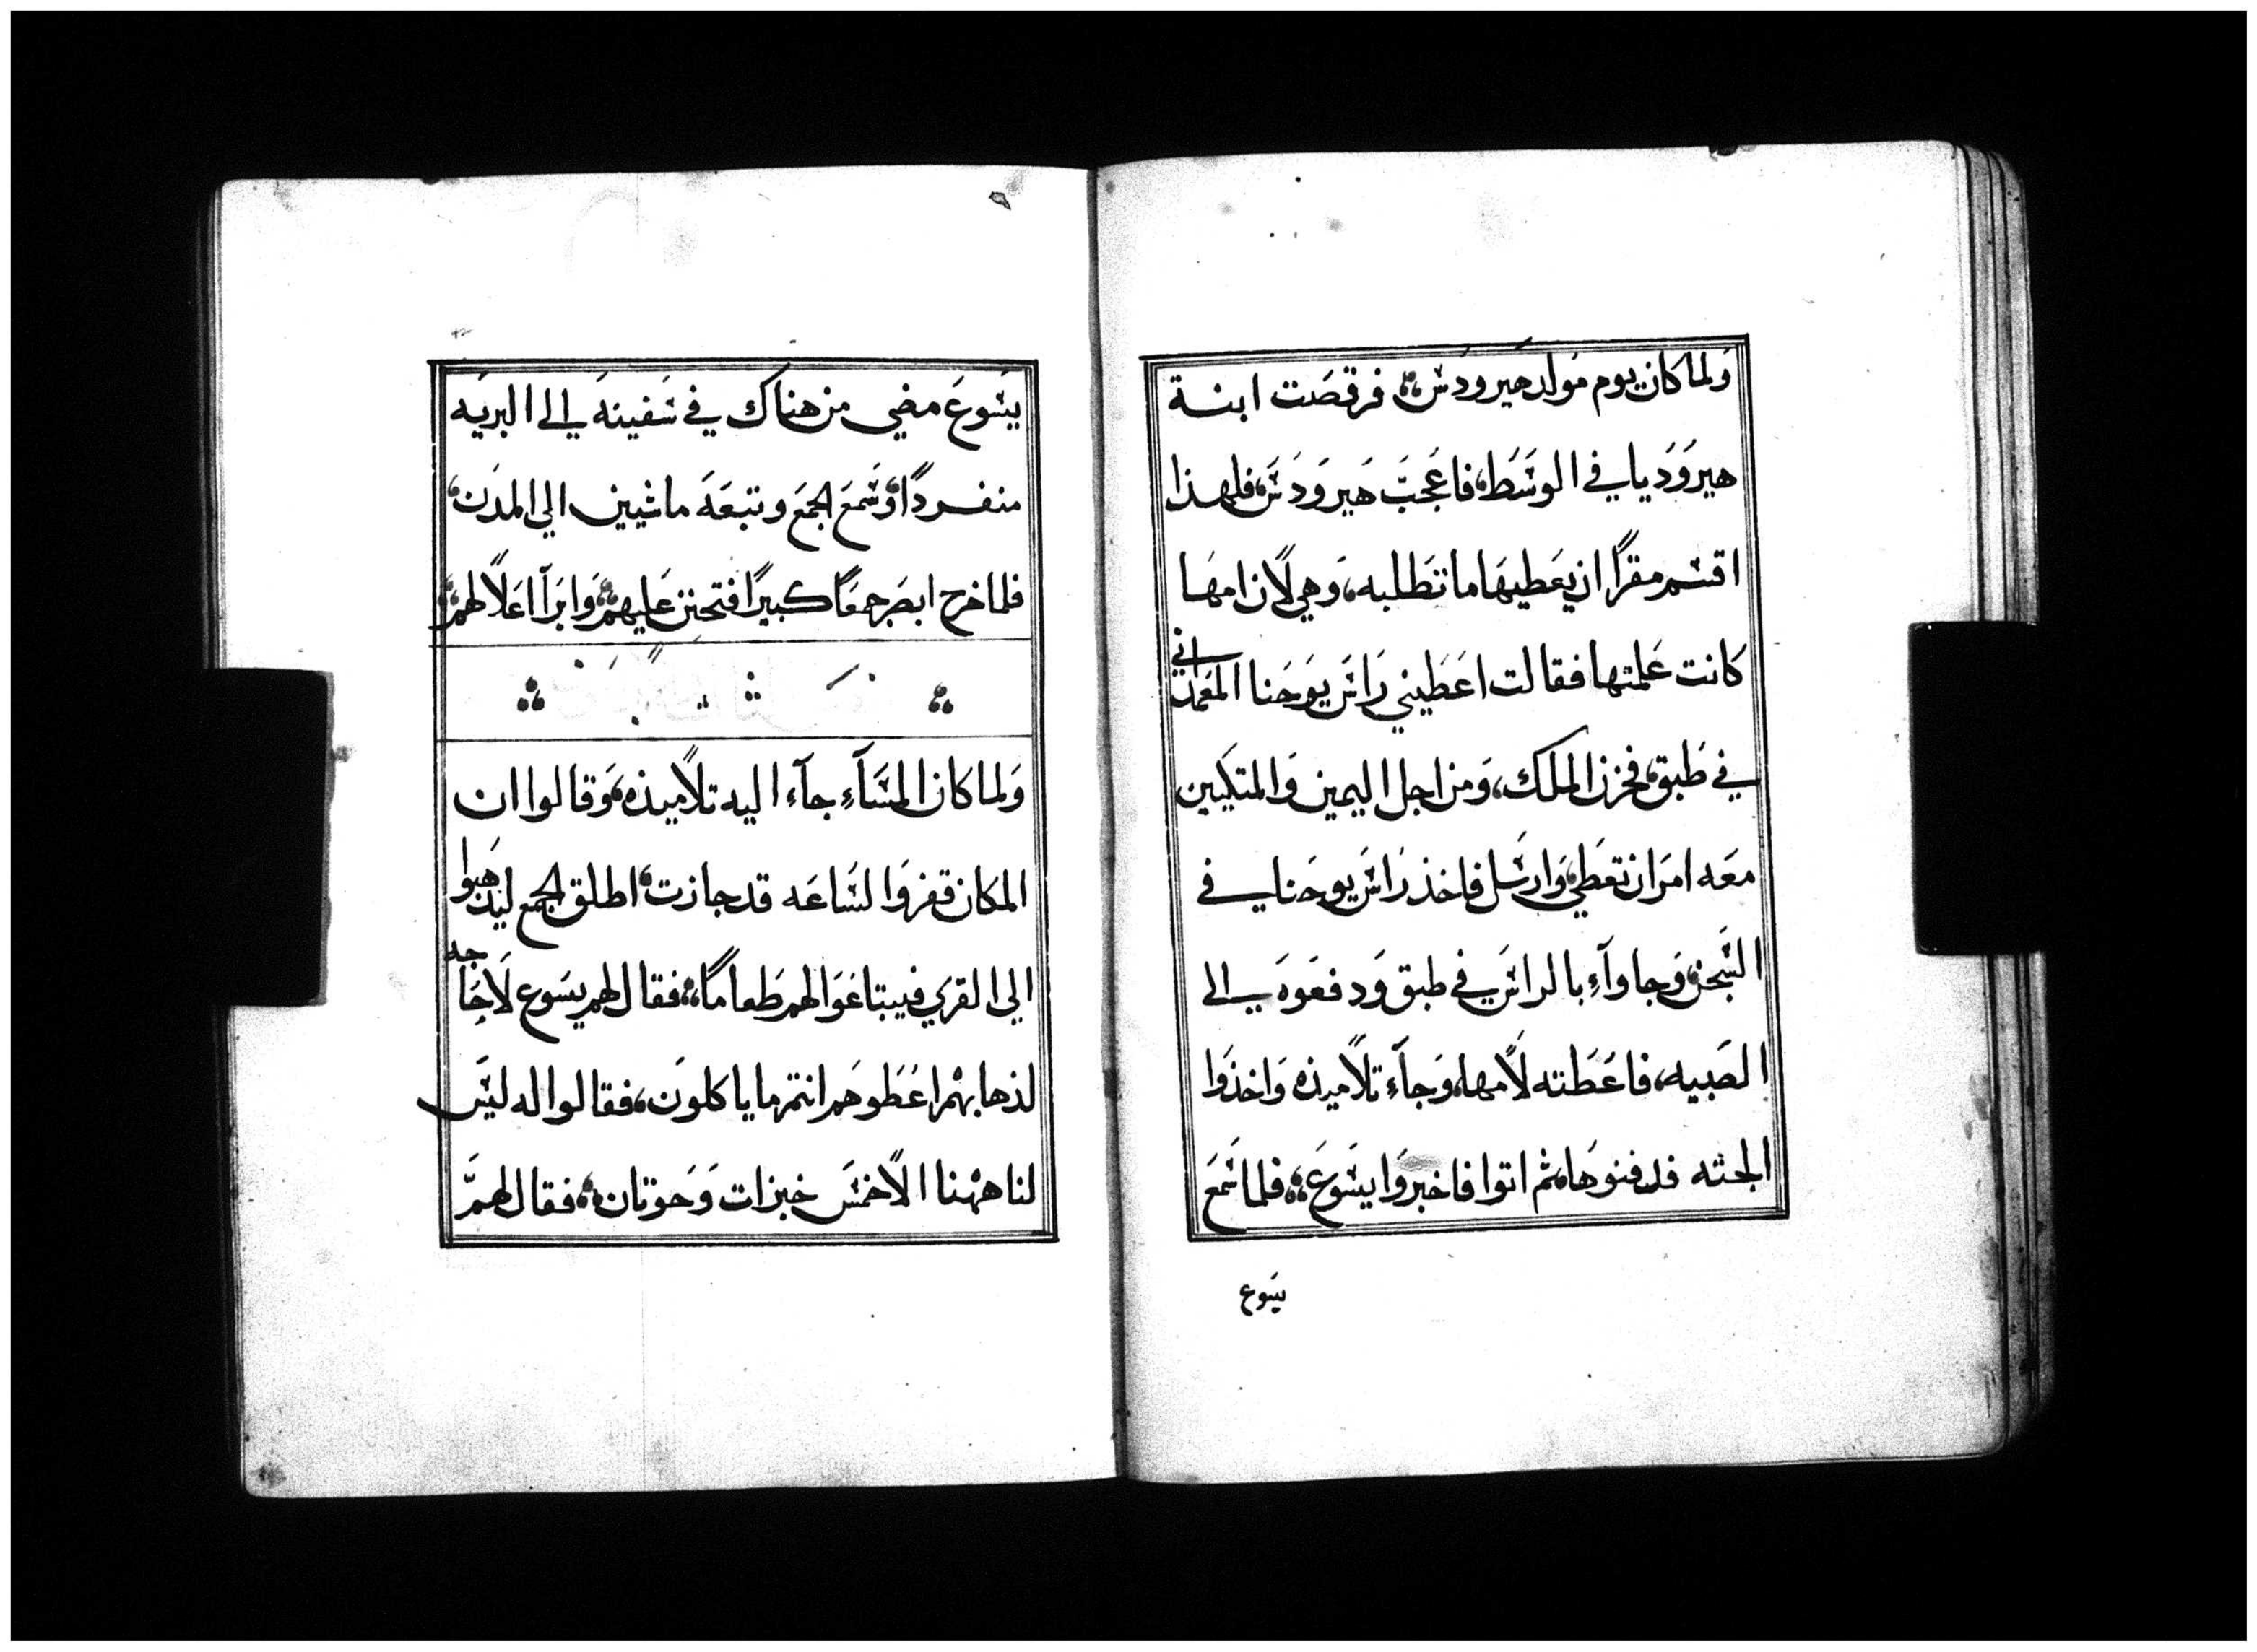 ولما كان يوم مولد هيرودس فرقصت ابنة
هيروديا في الوسط، فاعجب هيرودس، فلهذا
اقسم مقرًا ان يعطيها ما تطلبه، وهي لان امها
كانت علمتها فقالت اعطيني راس يوحنا المعمداني
في طبق، فحزن الملك، ومن اجل اليمين والمتكيين
معه امر ان تعطي، وارسل فاخذ راس يوحنا في
السجن، وجاوآء بالراس في طبق ودفعوه الى
الصبيه، فاعطته لامها، وجآء تلاميذه واخذوا
الجثه فدفنوها، ثم اتوا فاخبروا يسوع، فلما سمع
يسوع
يسوع مضي من هناك في سفينه الى البريه
منفردًا، وسمع الجمع وتبعه ماشيين الي المدن،
فلما خرج ابصر جمعًا كبيرًا فتحنن عليهم، وابرآ اعلالهم،
ولما كان المسآء جآء اليه تلاميذه، وقالوا ان
المكان قفر والساعه قد جازت، اطلق الجمع ليذهبوا
الي القري فيبتاعوا لهم طعامًا، فقال لهم يسوع لا حاجه
لذهابهم اعطوهم انتم ما ياكلون، فقالوا له ليس
لنا ههنا الا خمس خبزات وحوتان، فقال لهم